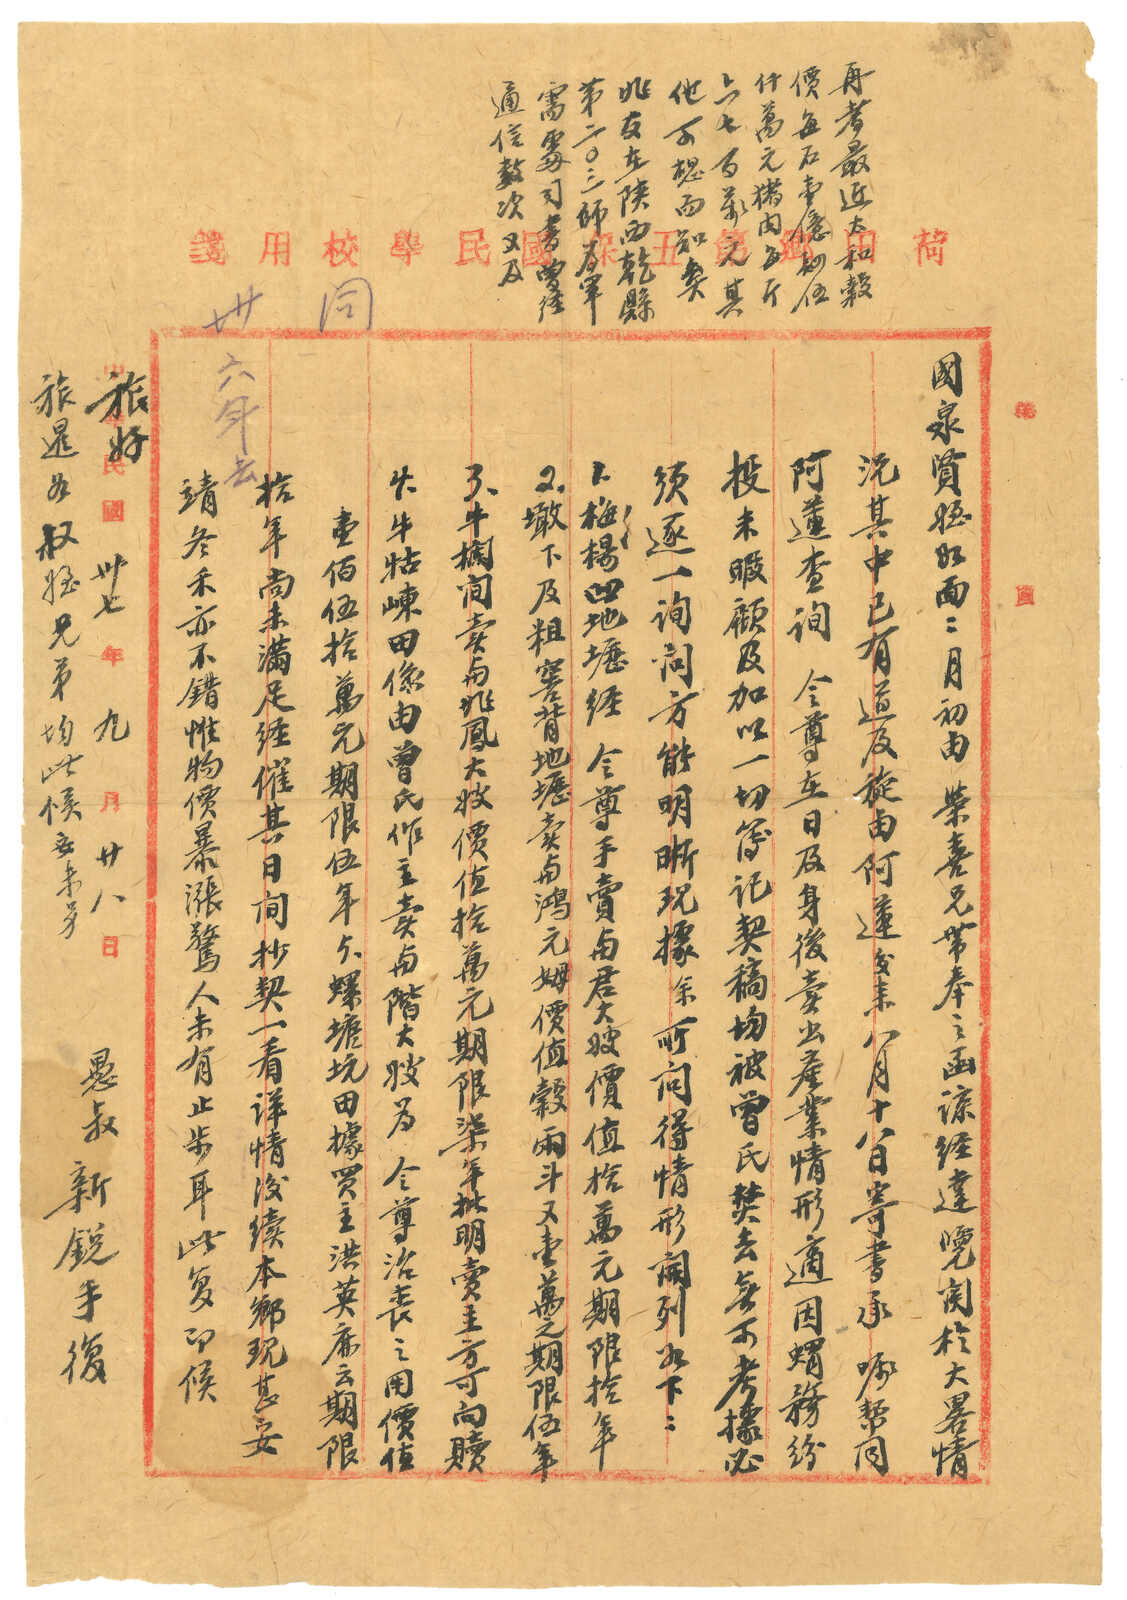 國泉賢姪如面二月初由　榮喜兄帶奉之函諒經達覽関於大畧情
況其中已有道及旋由阿蓮交來八月十八日寄書承　囑幫同
阿蓮查詢　令尊在日及身後賣出產業情形適因蝟務紛
投未暇顧及加以一切簿記契稿均被曾氏焚去無可考據必
須逐一詢问方能明晰現據余所问得情形開列如下：
1. 梅楊凹地壢経　令尊手賣與君大嫂價值拾萬元期限拾年
2. 墩下及粗窖背地壢賣與鴻元姆價值穀兩斗又壹萬元期限伍年
3. 牛欄间賣與兆鳳大嫂價值拾萬元期限柒年批明賣主方可向贖
4. 牛牯崠田係由曾氏作主賣與階大嫂為　令尊治喪之用價值
壹佰伍拾萬元期限伍年5.螺塘坑田據買主洪英嫲云期限
拾年尚未滿足経催其日间抄契一看详情後續本鄉現甚安
靖冬禾亦不錯惟物價暴漲驚人未有止步耳此复即候
旅好
愚叔　新銳手復
旅暹各叔姪兄弟均此候安未另
中華民國卅七年九月廿八日
再者最近大和穀
價每石壹億伍
仟萬元猪肉每斤
六七百萬元其
他可想而知矣
兆友在陝西乾縣
第二〇三師
司書曾経
通信數次又及
荷田鄉第五保國民學校用箋
同
卅六年去
第　頁